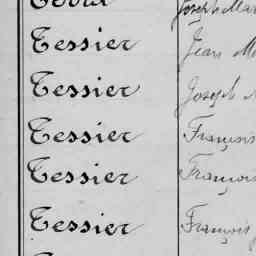 Tessier Jean
Tessier Joseph
Tessier François
Tessier François
Tessier François